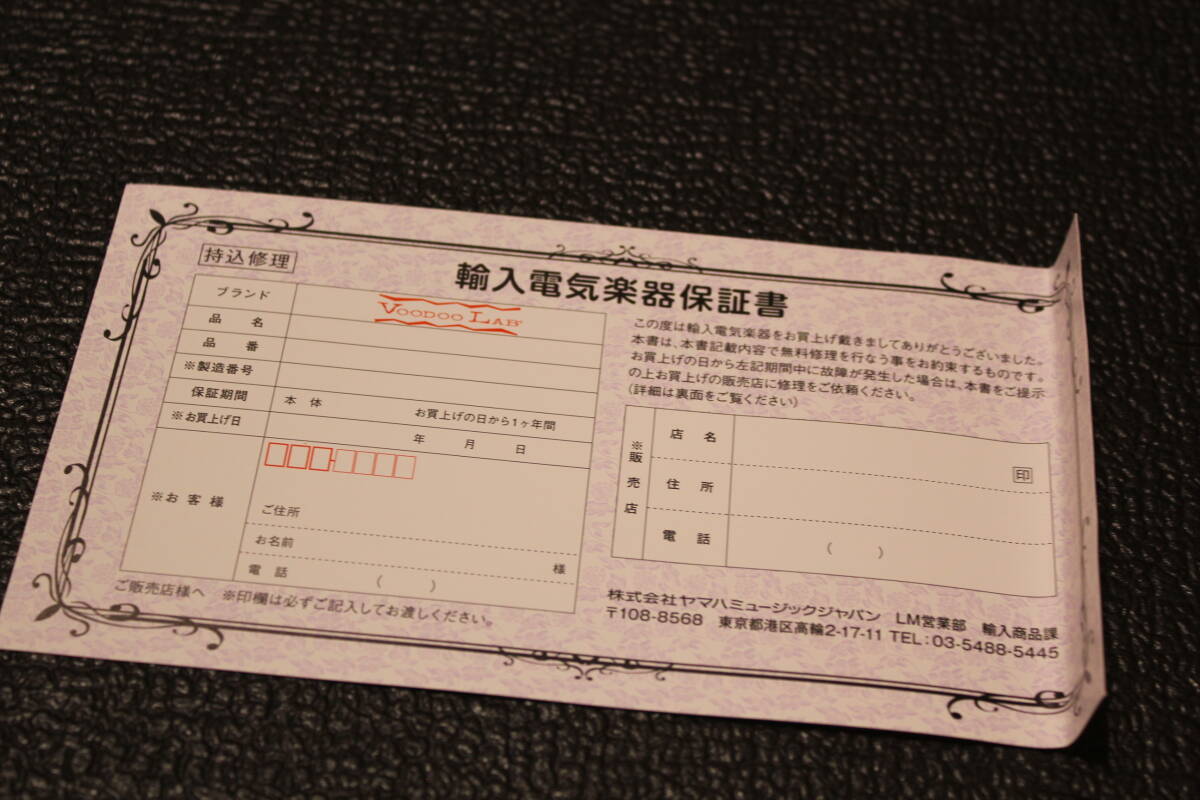 持込修理
輸入電気楽器保証書
ブランド VOODOO LAB
品名
品番
※製造番号
保証期間 本体 お買上げの日から1ヶ年間
※お買上げ日 年 月 日
※お客様
ご住所
お名前 様
電話 ( )
ご販売店様へ ※印欄は必ずご記入してお渡しください。
この度は輸入電気楽器をお買上げ戴きましてありがとうございました。
本書は、本書記載内容で無料修理を行なう事をお約束するものです。
お買上げの日から左記期間中に故障が発生した場合は、本書をご提示
の上お買上げの販売店に修理をご依頼ください。
(詳細は裏面をご覧ください)
※販売店
店名 印
住所
電話 ( )
株式会社ヤマハミュージックジャパン LM営業部 輸入商品課
〒108-8568 東京都港区高輪2-17-11 TEL:03-5488-5445